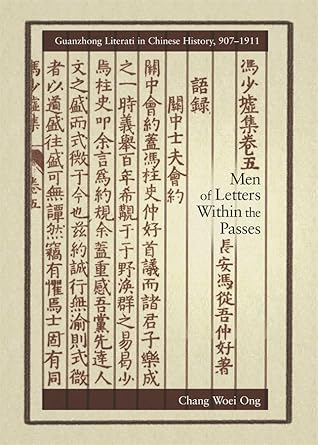 Guanzhong Literati in Chinese History, 907–1911
馮少墟集卷五
Men
of Letters
Within the
Passes
長安馮從吾仲好著
語錄
關中士夫會約
關中會約蓋馮柱史仲好首議而諸君子樂成
之一時義舉百年希觀于于野渙群之易易少
烏柱史叩余言為約規余蓋重感吾黨先達人
文之盛而式微于今也茲約誠行無渝則式微
者以遒盛往盛可無譚然竊有懼焉士固有同
馮少墟集 卷五
Chang Woei Ong